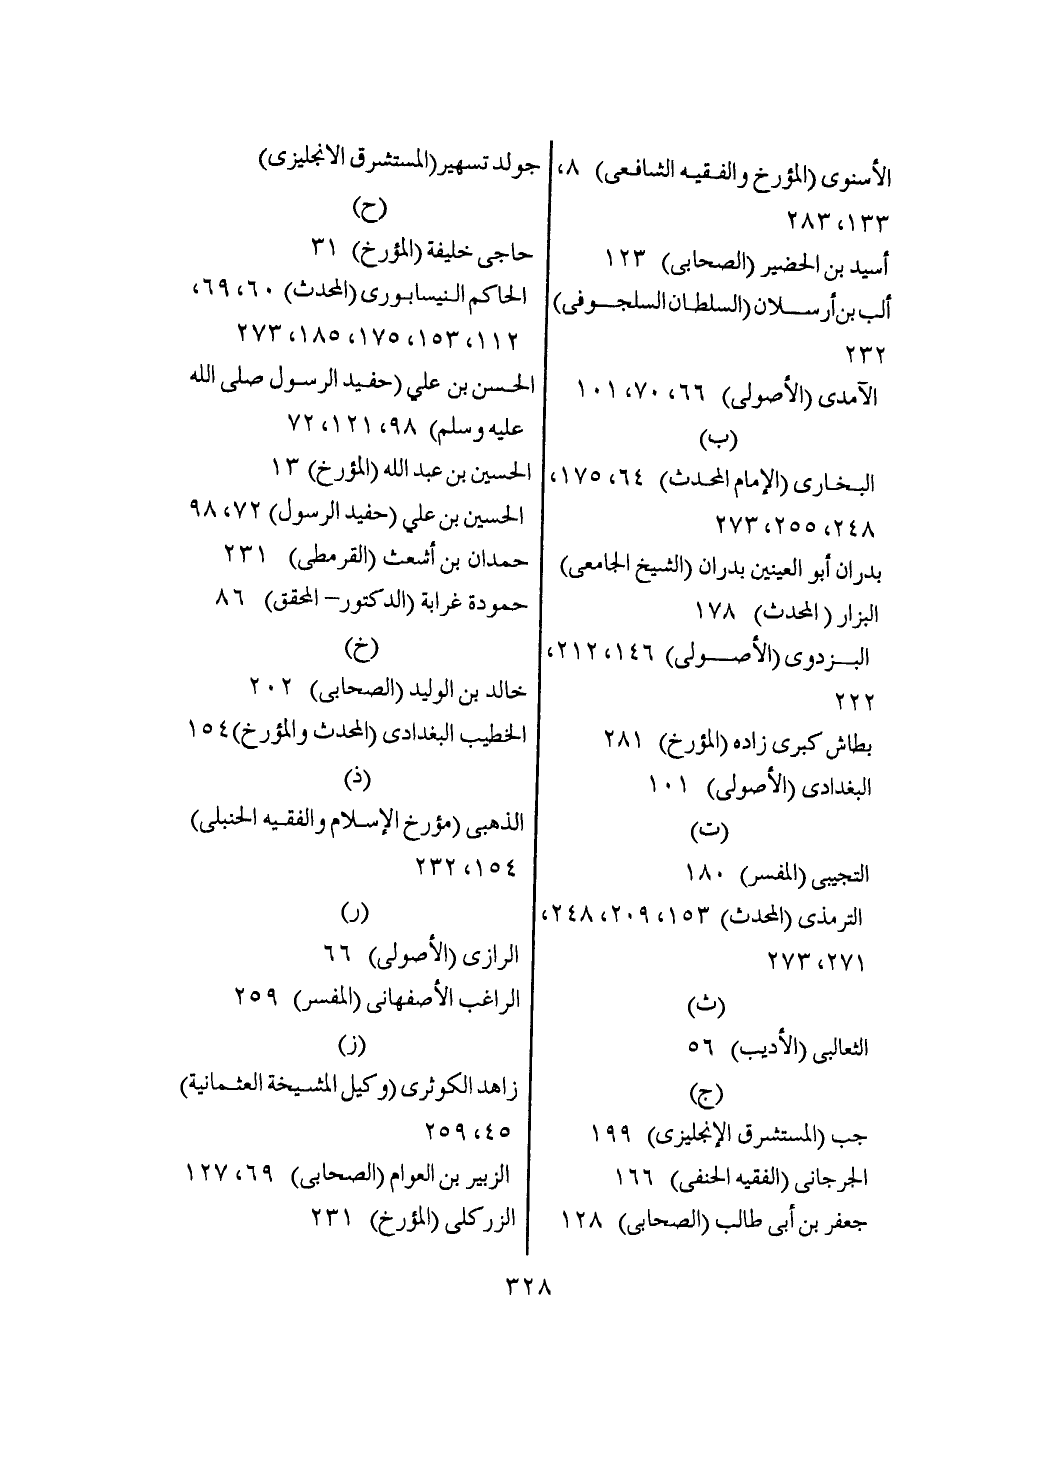 الأسنوى (المؤرخ والفقيه الشافعى) ٨،
١٣٣، ٢٨٣
أسيد بن الحضير (الصحابى) ١٢٣
ألب بن أرسلان (السلطان السلجوفى)
٢٣٢
الآمدى (الأصولى) ٦٦، ٧٠، ١٠١
(ب)
البخارى (الإمام المحدث) ٦٤، ١٧٥،
٢٤٨، ٢٥٥، ٢٧٣
بدران أبو العينين بدران (الشيخ الجامعى)
البزار (المحدث) ١٧٨
البزدوى (الأصولى) ١٤٦، ٢١٢،
٢٢٢
بطاش كبرى زاده (المؤرخ) ٢٨١
البغدادى (الأصولى) ١٠١
(ت)
التجيبى (المفسر) ١٨٠
الترمذى (المحدث) ١٥٣، ٢٠٩، ٢٤٨،
٢٧١، ٢٧٣
(ث)
الثعالبى (الأديب) ٥٦
(ج)
جب (المستشرق الإنجليزى) ١٩٩
الجرجانى (الفقيه الحنفى) ١٦٦
جعفر بن أبى طالب (الصحابى) ١٢٨
جولد تسهير (المستشرق الانجليزى)
(ح)
حاجى خليفة (المؤرخ) ٣١
الحاكم النيسابورى (المحدث) ٦٠، ٦٩،
١١٢، ١٥٣، ١٧٥، ١٨٥، ٢٧٣
الحسن بن علي (حفيد الرسول صلى الله
عليه وسلم) ٩٨، ١٢١، ٧٢
الحسين بن عبد الله (المؤرخ) ١٣
الحسين بن علي (حفيد الرسول) ٧٢، ٩٨
حمدان بن أشعث (القرمطى) ٢٣١
حمودة غرابة (الدكتور – المحقق) ٨٦
(خ)
خالد بن الوليد (الصحابى) ٢٠٢
الخطيب البغدادى (المحدث والمؤرخ) ١٥٤
(ذ)
الذهبى (مؤرخ الإسلام والفقيه الحنبلى)
١٥٤، ٢٣٢
(ر)
الرازى (الأصولى) ٦٦
الراغب الأصفهانى (المفسر) ٢٥٩
(ز)
زاهد الكوثرى (وكيل المشيخة العثمانية)
٤٥، ٢٥٩
الزبير بن العوام (الصحابى) ٦٩، ١٢٧
الزركلى (المؤرخ) ٢٣١
٣٢٨